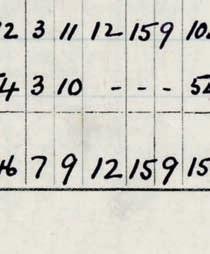 2 3 11 12 15 9 10
4 3 10 - - - 54
16 7 9 12 15 9 15